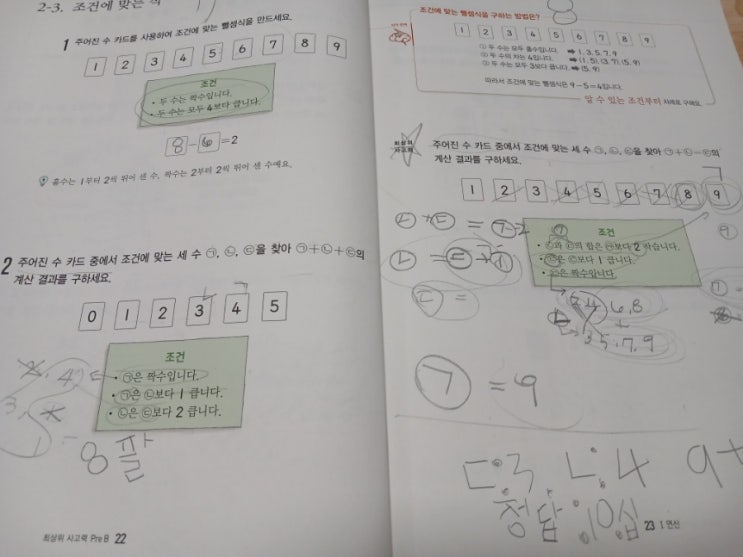 2-3. 조건에 맞는
1 주어진 수 카드를 사용하여 조건에 맞는 뺄셈식을 만드세요.
1 2 3 4 5 6 7 8 9
조건
• 두 수는 짝수입니다.
• 두 수는 모두 4보다 큽니다.
8 - 6 = 2
홀수는 1부터 2씩 뛰어 센 수, 짝수는 2부터 2씩 뛰어 센 수예요.
2 주어진 수 카드 중에서 조건에 맞는 세 수 ㉠, ㉡, ㉢을 찾아 ㉠+㉡+㉢의
계산 결과를 구하세요.
0 1 2 3 4 5
조건
• ㉠은 짝수입니다.
• ㉠은 ㉡보다 1 큽니다.
• ㉡은 ㉢보다 2 큽니다.
2, 4
3,
1
8 팔
최상위 사고력 Pre B 22
조건에 맞는 뺄셈식을 구하는 방법은?
8
1 2 3 4 5 6 7 8 9
① 두 수는 모두 홀수입니다. ➡ 1, 3, 5, 7, 9
② 두 수의 차는 4입니다. ➡ (1, 5), (3, 7), (5, 9)
③ 두 수는 모두 3보다 큽니다. ➡ (5, 9)
따라서 조건에 맞는 뺄셈식은 9-5=4입니다.
알 수 있는 조건부터 차례로 구해요.
최상위
사고력
주어진 수 카드 중에서 조건에 맞는 세 수 ㉠, ㉡, ㉢을 찾아 ㉠+㉡-㉢의
계산 결과를 구하세요.
1 2 3 4 5 6 7 8 9
㉡+㉢ = ㉠-2
㉡ = ㉢+1
㉢ =
조건
• ㉡과 ㉢의 합은 ㉠보다 2 작습니다.
• ㉡은 ㉢보다 1 큽니다.
• ㉡은 짝수입니다.
2 4 6, 8
3 5, 7, 9
㉠ = 9
ㄷ:3 ㄴ:4 9+
정답:10십
23 I 연산